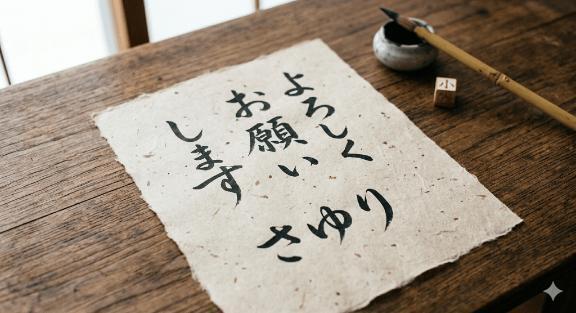 よろしく
お願い
します
さゆり
小